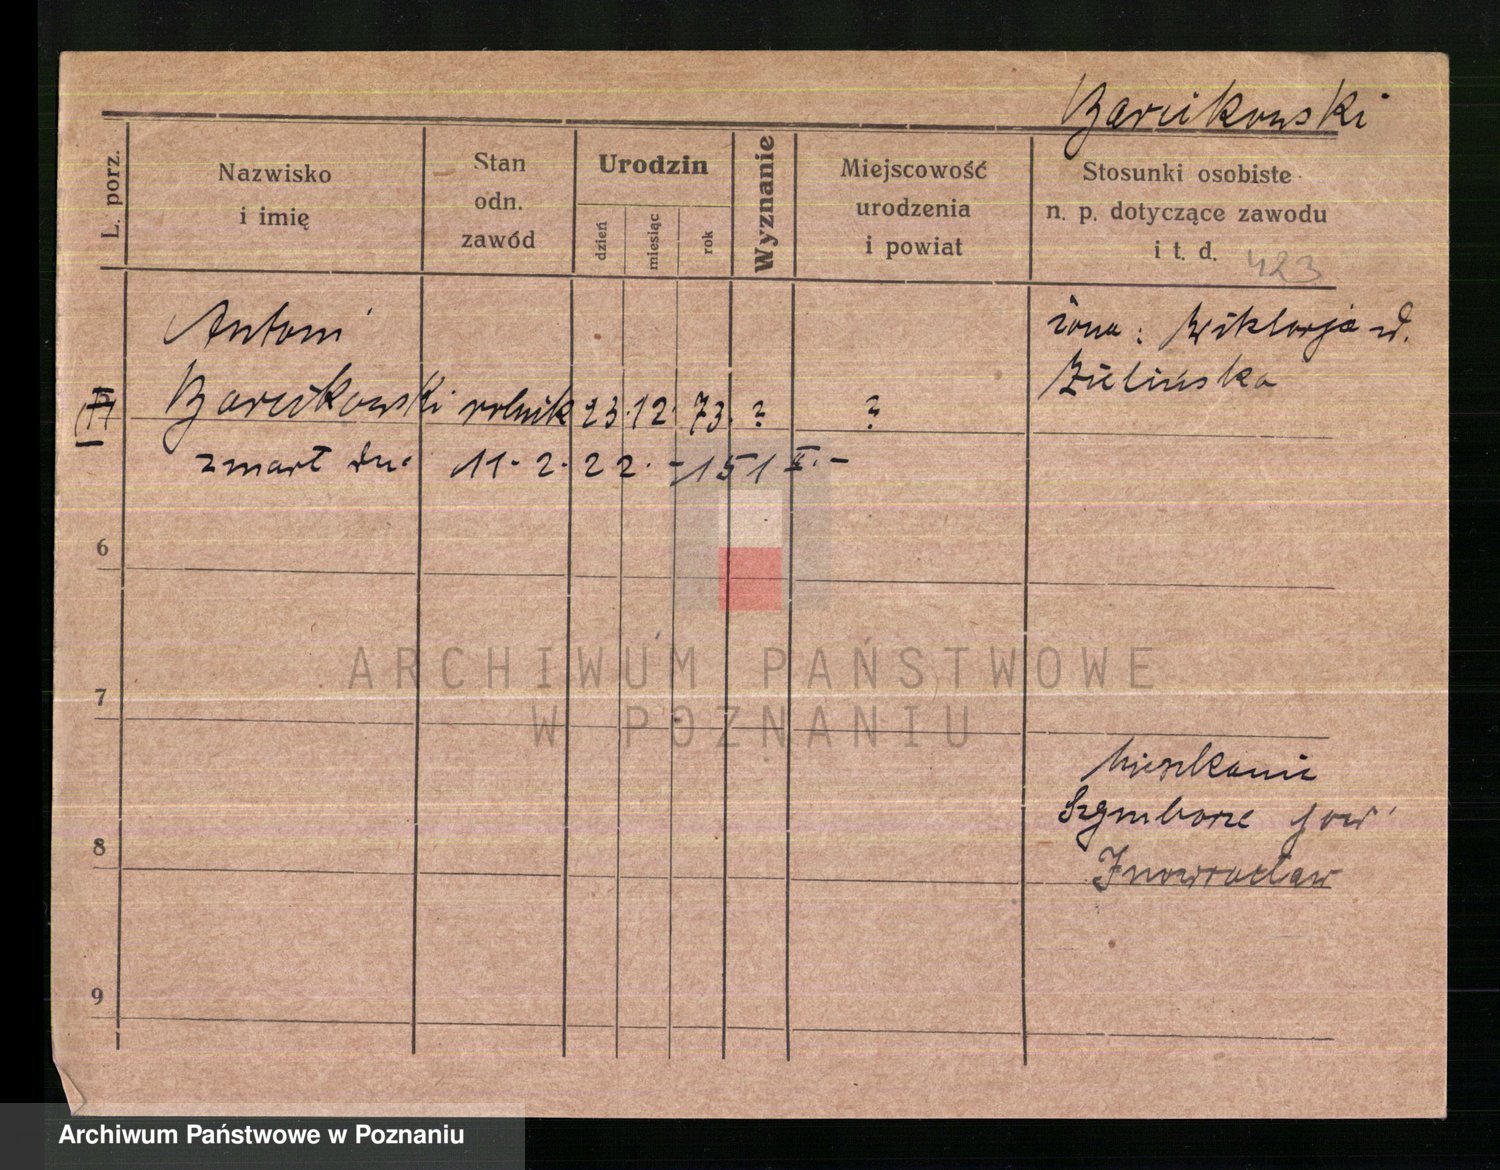 Barcikowski
L. porz.
Nazwisko
i imię
Stan
odn.
zawód
Urodzin
dzień
miesiąc
rok
Wyznanie
Miejscowość
urodzenia
i powiat
Stosunki osobiste
n. p. dotyczące zawodu
i t. d.
423
Antoni
Barcikowski rolnik 23. 12. 73. ? ?
żona: Wiktorja
Zielińska
zmarł dn. 11. 2. 22. - 151 II. -
6
7
8
9
Mieszkanie
Szymborze pow.
Inowrocław
ARCHIWUM PAŃSTWOWE
W POZNANIU
Archiwum Państwowe w Poznaniu